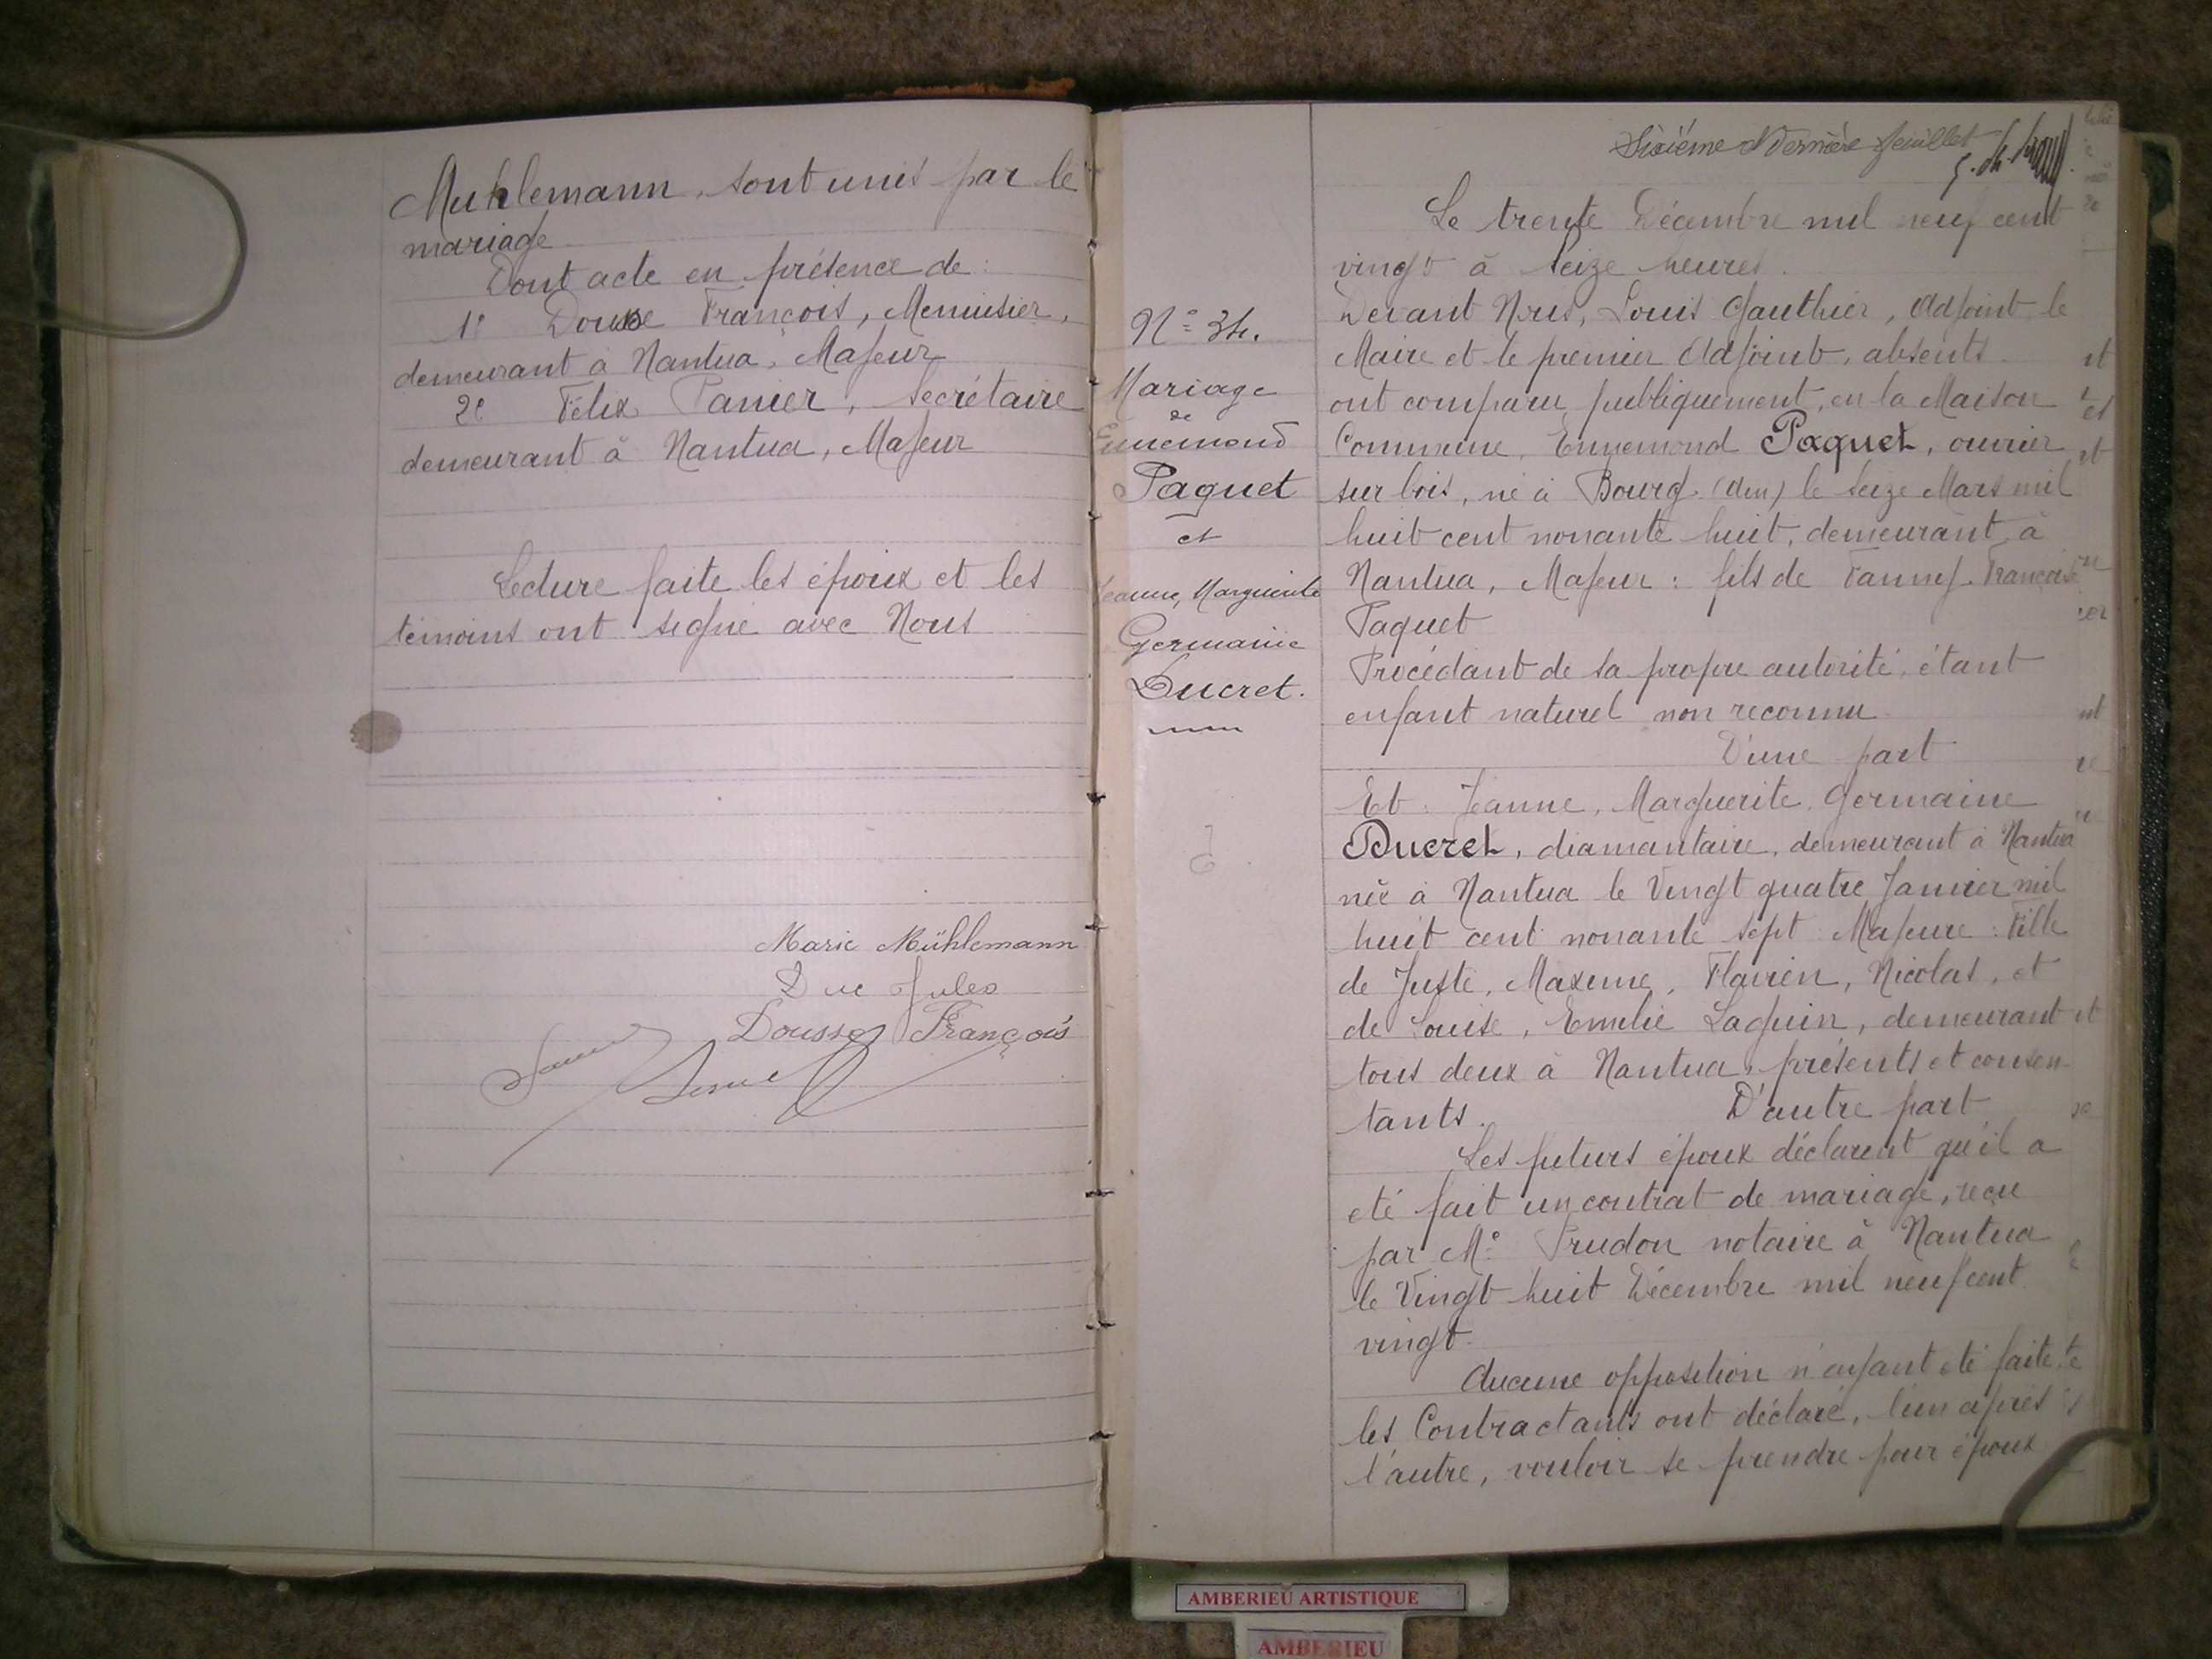 Muhlemann, sont unis par le
mariage
Dont acte en présence de :
1° Dousse François, Menuisier,
demeurant à Nantua, Majeur
2° Félix Panier, Secrétaire
demeurant à Nantua, Majeur
Lecture faite les époux et les
témoins ont signé avec Nous
Marie Mühlemann
Duc Jules
Dousse François
Sixième & Dernière feuillet
N° 34.
Mariage
de
Ennemond
Paquet
et
Jeanne, Marguerite
Germaine
Ducret.
Le trente Décembre mil neuf cent
vingt à seize heures.
Devant Nous, Louis Gauthier, Adjoint le
Maire et le premier Adjoint, absents
ont comparu publiquement, en la Maison
Commune, Ennemond Paquet, ouvrier
sur bois, né à Bourg (Ain) le seize Mars mil
huit cent nonante huit, demeurant à
Nantua, Majeur : fils de Fanny Françoise
Paquet
Procédant de sa propre autorité, étant
enfant naturel non reconnu
D'une part
Et : Jeanne, Marguerite, Germaine
Ducret, diamantaire, demeurant à Nantua
née à Nantua le Vingt quatre Janvier mil
huit cent nonante sept Majeure : Fille
de Juste, Maxime, Flavien, Nicolas, et
de Louise, Emelie Laguin, demeurant
tous deux à Nantua, présents et consen-
tants. D'autre part
Les futurs époux déclarent qu'il a
eté fait un contrat de mariage, reçu
par M° Prudon notaire à Nantua
le Vingt huit Décembre mil neuf cent
vingt.
Aucune opposition n'ayant eté faite
les Contractants ont déclaré, l'un après
l'autre, vouloir se prendre pour époux
AMBERIEU ARTISTIQUE
AMBERIEU